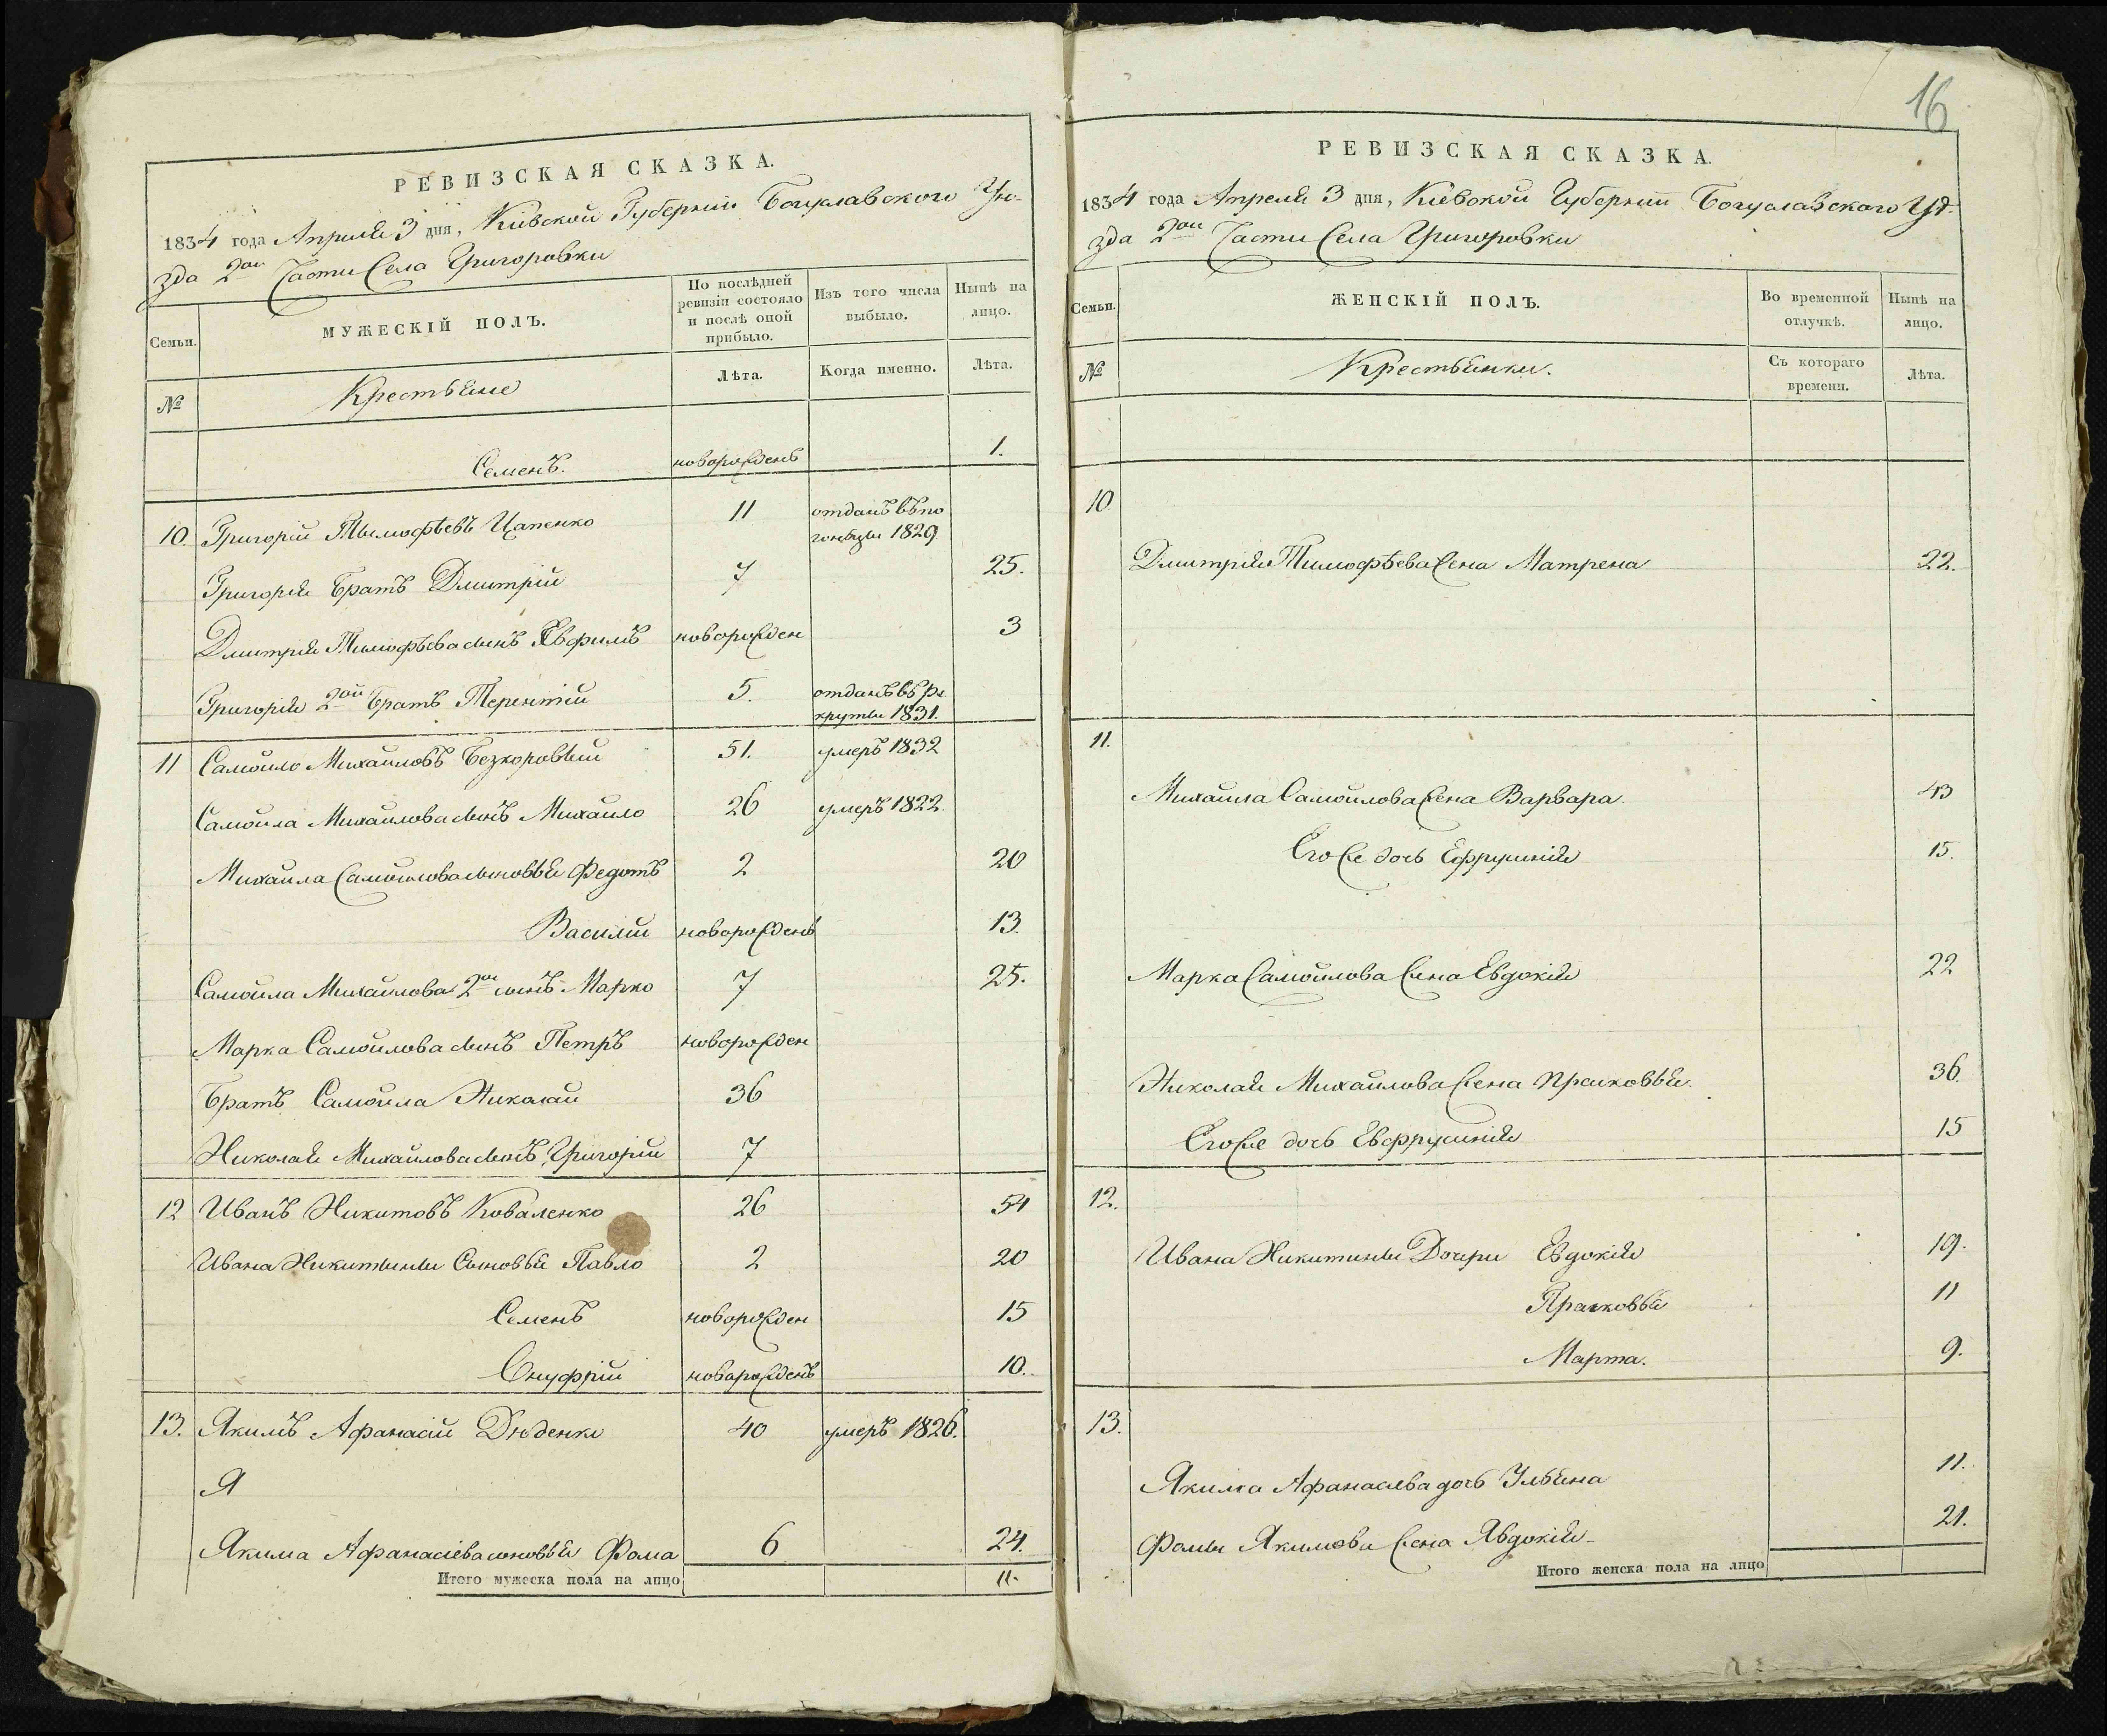 РЕВИЗСКАЯ СКАЗКА.
1834 года Апреля 3 дня, Кіевской Губерніи Богуславского Уѣ-
зда 2ой Части Села Григоровки
Семьи.
МУЖЕСКІЙ ПОЛЪ.
По послѣдней ревизіи состояло и послѣ оной прибыло.
Изъ того числа выбыло.
Нынѣ на лицо.
№
Крестьяне
Лѣта.
Когда именно.
Лѣта.
Семенъ. новорожденъ 1.
10. Григорій Тымофѣевъ Цапенко 11 отданъ въ по
гонцы 1829
Григорія Братъ Дмитрій 7 25.
Дмитрія Тимофѣева сынъ Евфимъ новорожден 3
Григорія 2ой Братъ Терентій 5. отданъ въ ре
круты 1831.
11 Самойло Михайловъ Безкоровый 51. умеръ 1832
Самойла Михайлова сынъ Михайло 26 умеръ 1822
Михаила Самойлова сыновья Федотъ 2 20
Василій новорожденъ 13.
Самойла Михайлова 2ой сынъ Марко 7 25.
Марка Самойлова сынъ Петръ новорожден
Братъ Самойла Николай 36
Николая Михайлова сынъ Григорій 7
12 Иванъ Никитовъ Коваленко 26 54
Ивана Никитины Сыновья Павло 2 20
Семенъ новорожден 15
Онуфрій новорожденъ 10.
13. Якимъ Афанасій 40 умеръ 1826.
Я
Якима Афанасіева сыновья Фома 6 24.
Итого мужеска пола на лицо 11.
16
РЕВИЗСКАЯ СКАЗКА.
1834 года Апреля 3 дня, Кіевской Губерніи Богуславского Уѣ-
зда 2ой Части Села Григоровки
Семьи.
ЖЕНСКІЙ ПОЛЪ.
Во временной отлучкѣ.
Нынѣ на лицо.
№
Крестьянки.
Съ котораго времени.
Лѣта.
10
Дмитрія Тимофѣева жена Матрена 22.
11.
Михаила Самойлова жена Варвара. 43
Его же дочь Ефрусинія 15.
Марка Самойлова жена Евдокія 22
Николая Михайлова жена Прасковья. 36
Его же дочь Евфрусинія 15
12.
Ивана Никитины Дочери Евдокія 19.
Прасковья 11
Марта. 9.
13.
Якима Афанасіева дочь Ульяна 11.
Фомы Якимова жена Явдокія 21.
Итого женска пола на лицо